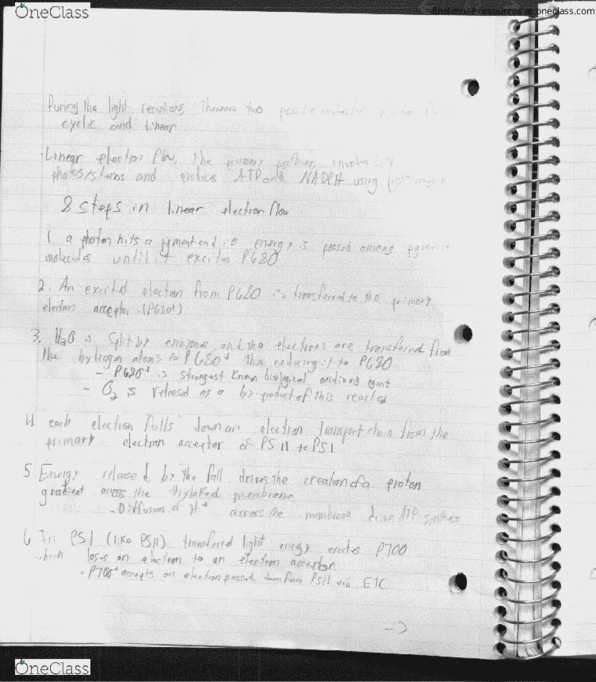 OneClass
find more resources at oneclass.com
During the light reactions, there are two possible electron flow
cyclic and linear
Linear electron flow, the primary pathway, involves both
photosystems and produces ATP and NADPH using light energy
8 steps in linear electron flow
1. a photon hits a pigment and its energy is passed among pigment
molecules until it excites P680
2. An excited electron from P680 is transferred to the primary
electron acceptor (P680+)
3. H2O is split by enzymes, and the electrons are transferred from
the hydrogen atoms to P680+ thus reducing it to P680
- P680+ is strongest known biological oxidizing agent
- O2 is released as a by product of this reaction
4 each electron "falls" down an electron transport chain from the
primary electron acceptor of PS II to PS I
5 Energy released by the fall drives the creation of a proton
gradient across the thylakoid membrane
- Diffusion of H+ across the membrane drives ATP synthesis
6 In PS I (like PS II) transferred light energy excites P700
which loses an electron to an electron acceptor
. P700+ accepts an electron passed down from PS II via ETC
->
OneClass